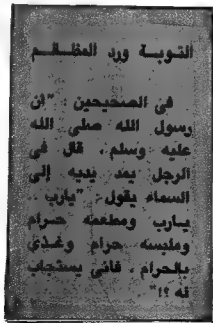 التوبة ورد المظالم
في الصحيحين : "ان
رسول الله صلى الله
عليه وسلم ، قال في
الرجل يمد يديه إلى
السماء يقول : "يارب ..
يارب ومطعمه حرام
وملبسه حرام وغذي
بالحرام ، فانى يستجاب
له ؟!"